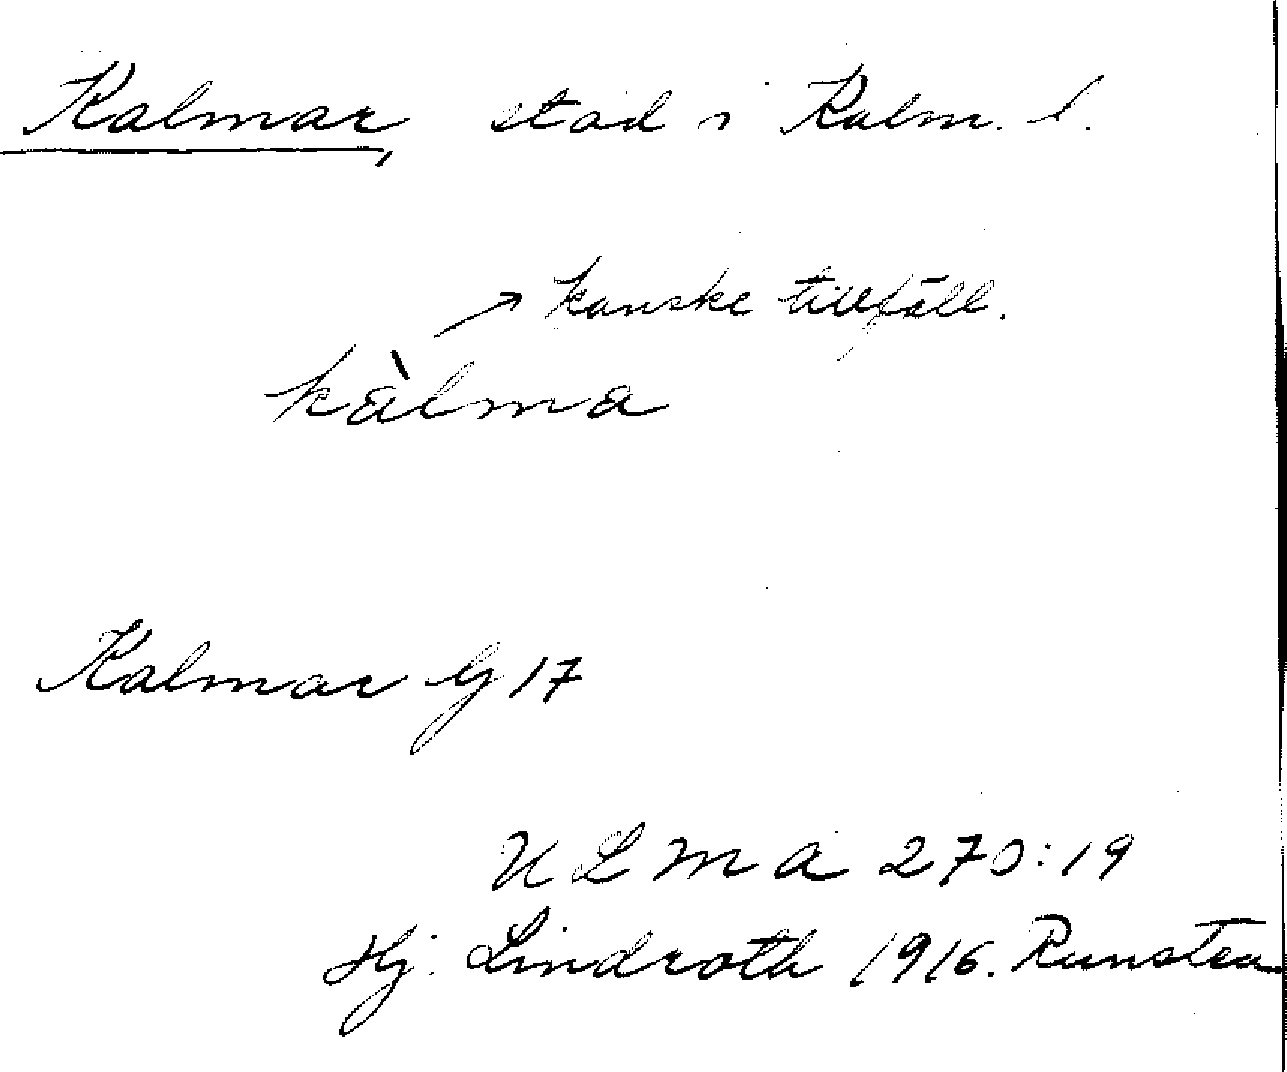 Kalmar, stad i Kalm. l.
→ kanske tillfäll.
kàlma
Kalmar G 17
ULMA 270:19
Hj. Lindroth 1916. Runsten